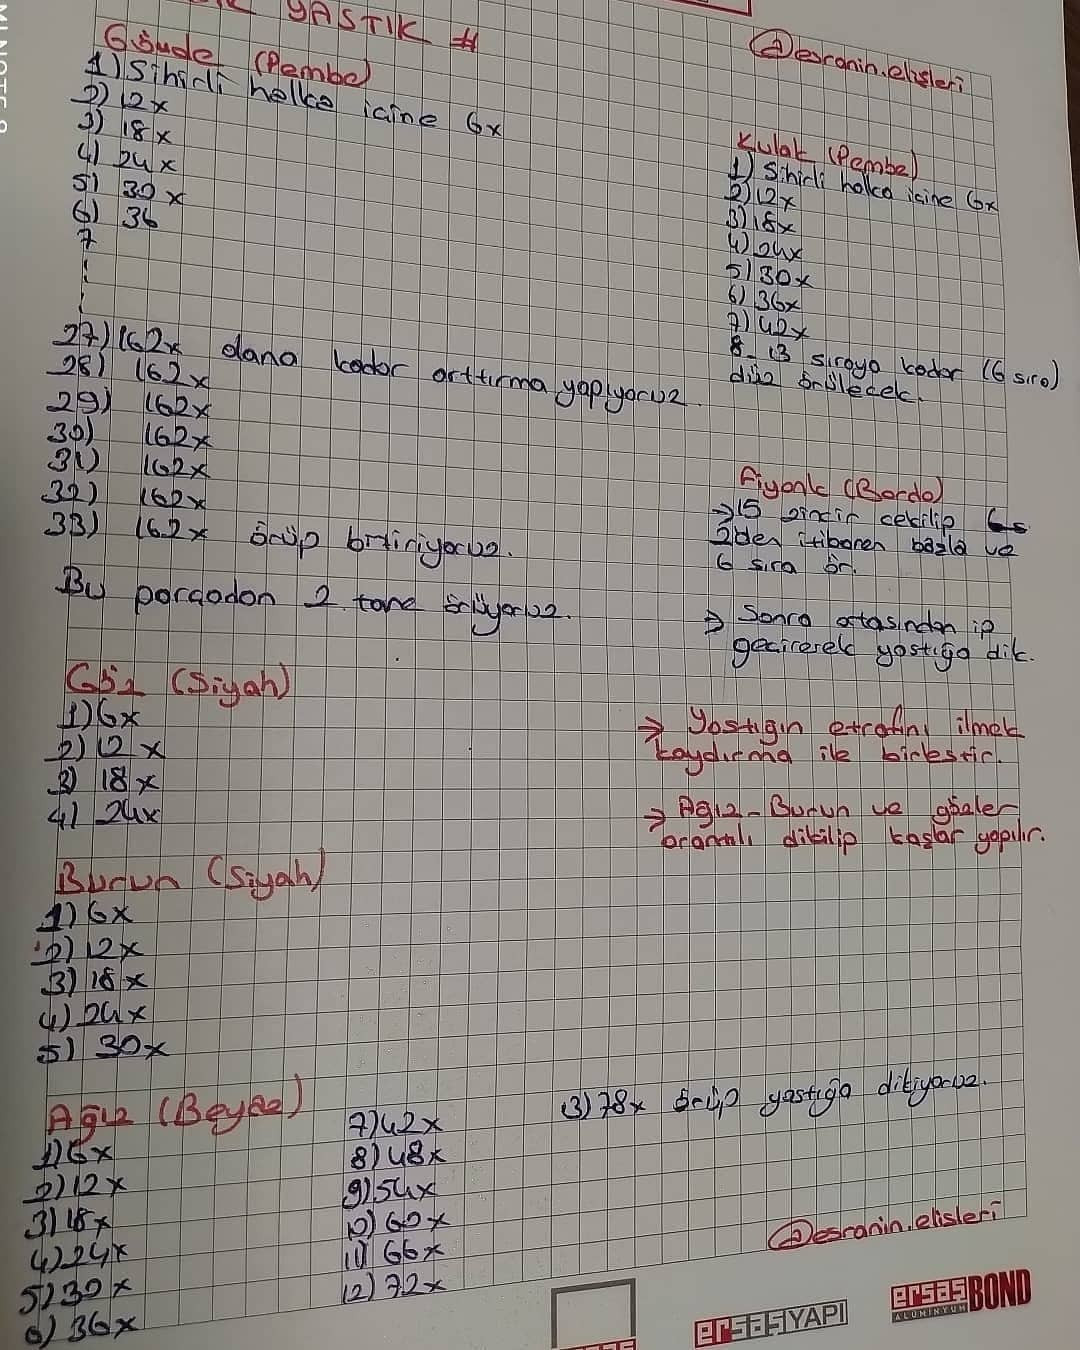 YASTIK #
@esranin.elisleri
Gövde (Pembe)
1) Sihirli halka içine 6x
2) 12x
3) 18x
4) 24x
5) 30x
6) 36
7
27) 162x dana kadar arttırma yapıyoruz.
28) 162x
29) 162x
30) 162x
31) 162x
32) 162x
33) 162x örüp bitiriyoruz.
Bu parçadan 2 tane örüyoruz.
Göz (Siyah)
1) 6x
2) 12x
3) 18x
4) 24x
Burun (Siyah)
1) 6x
2) 12x
3) 18x
4) 24x
5) 30x
Ağız (Beyaz)
1) 6x
2) 12x
3) 18x
4) 24x
5) 30x
6) 36x
7) 42x
8) 48x
9) 54x
10) 60x
11) 66x
12) 72x
13) 78x örüp yastığa dikiyoruz.
Kulak (Pembe)
1) Sihirli halka içine 6x
2) 12x
3) 18x
4) 24x
5) 30x
6) 36x
7) 42x
8-13 sıraya kadar (6 sıra)
düz örülecek.
Fiyonk (Bordo)
→ 15 zincir çekilip
2den itibaren başla ve
6 sıra ör.
→ Sonra ortasından ip
geçirerek yastığa dik.
→ Yastığın etrafını ilmek
kaydırma ile birleştir.
→ Ağız-Burun ve gözler
orantılı dikilip kaşlar yapılır.
@esranin.elisleri
ersasYAPI
ersasBOND
ALUMINYUM